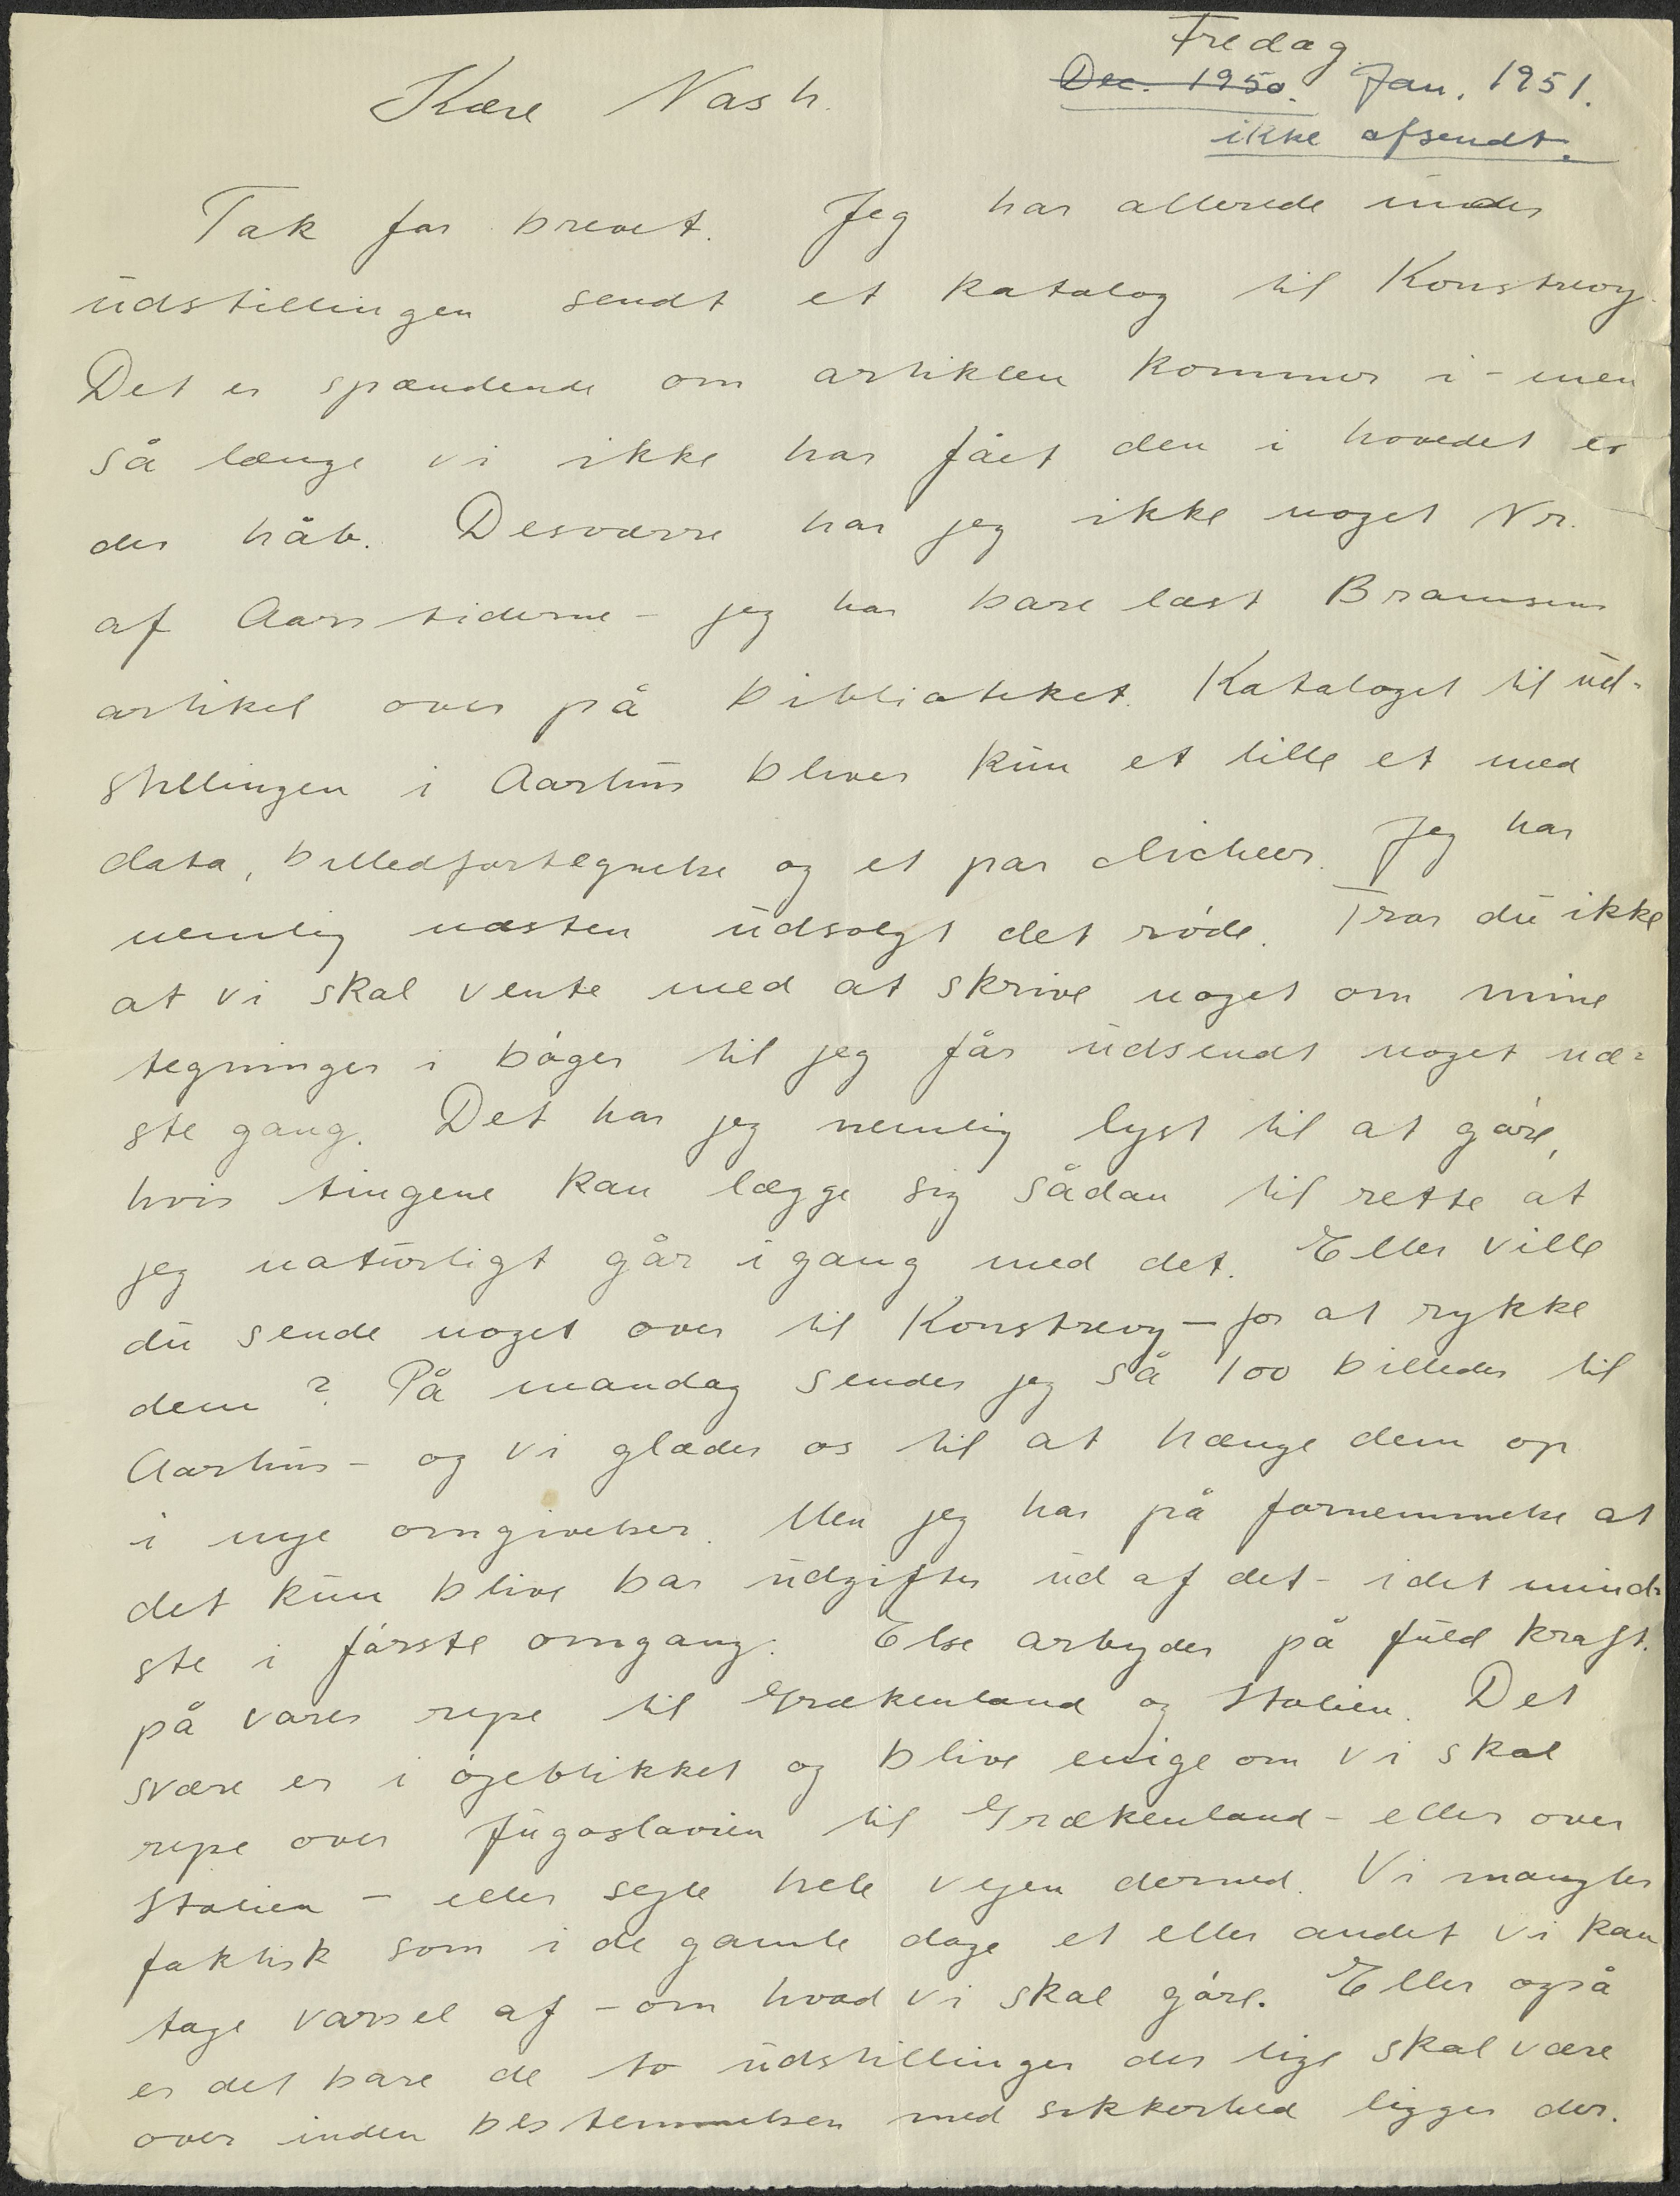 Fredag
Dec. 1950. Jan. 1951.
ikke afsendt.
Kære Nash.
Tak for brevet. Jeg har allerede under
udstillingen sendt et katalog til Konstrevy.
Det er spændende om artiklen kommer i - men
så længe vi ikke har fået den i hovedet er
der håb. Desværre har jeg ikke noget Nr.
af Aarstiderne - jeg har bare læst Bramsens
artikel over på biblioteket. Kataloget til ud-
stillingen i Aarhus bliver kun et lille et med
data, billedfortegnelse og et par clicheer. Jeg har
nemlig næsten udsolgt det røde. Tror du ikke
at vi skal vente med at skrive noget om mine
tegninger i bøger til jeg får udsendt noget næ-
ste gang. Det har jeg nemlig lyst til at gøre,
hvis tingene kan lægge sig sådan til rette at
jeg naturligt går igang med det. Eller ville
du sende noget over til Konstrevy - for at rykke
dem? På mandag sender jeg så 100 billeder til
Aarhus - og vi glæder os til at hænge dem op
i nye omgivelser. Men jeg har på fornemmelse at
det kun blive bar udgifter ud af det - idet mind-
ste i første omgang. Else arbyder på fuld kraft.
på vores rejse til Grækenland og Italien. Det
svære er i øjeblikket og blive enige om vi skal
rejse over Jugoslavien til Grækenland - eller over
Italien - eller sejle hele vejen derned. Vi mangler
faktisk som i de gamle dage et eller andet vi kan
tage varsel af - om hvad vi skal gøre. Eller også
er det bare de to udstillinger der lige skal være
over inden bestemmelsen med sikkerhed ligger der.